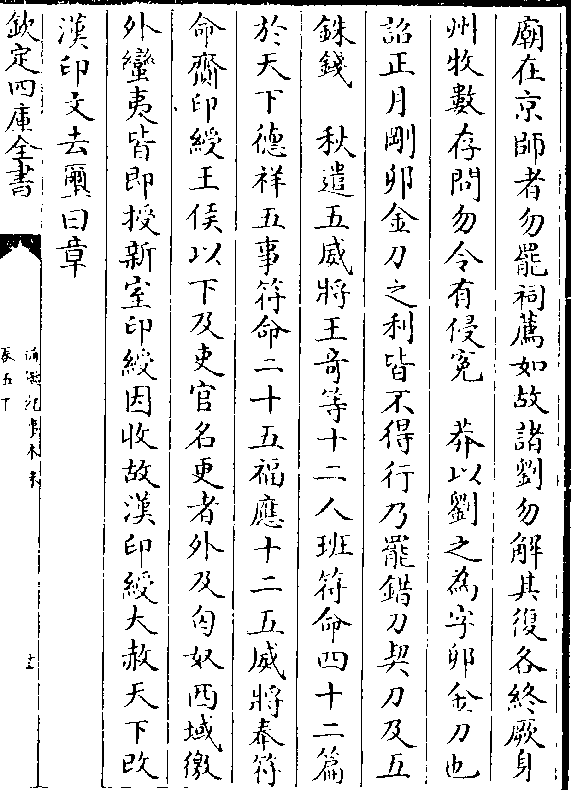 廟在京師者勿罷祠薦如故諸劉勿解其復各終厥身
州牧數存問勿令有侵寃　莽以劉之為字卯金刀也
詔正月剛卯金刀之利皆不得行乃罷錯刀契刀及五
銖錢　秋遣五威將王奇等十二人班符命四十二篇
於天下德祥五事符命二十五福應十二五威將奉符
命齎印綬王侯以下及吏官名更者外及匈奴西域徼
外蠻夷皆即授新室印綬因收故漢印綬大赦天下改
漢印文去璽曰章
欽定四庫全書
卷五下